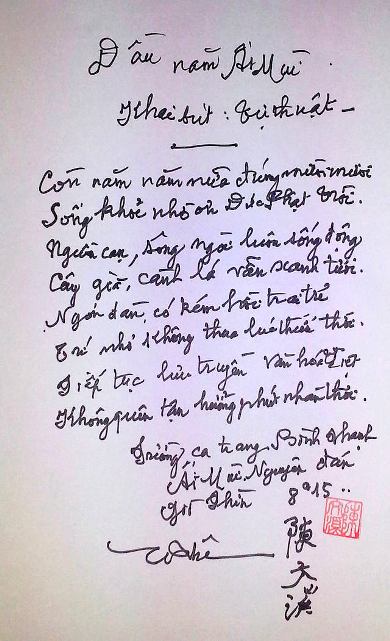 Đầu năm Ất Mùi
Khai bút : Tự thuật
Còn năm năm nữa đúng mười mươi
Sống khỏe nhờ ơn Đức Phật Trời.
Nguồn cạn, sông ngòi luôn sống động
Cây già, cành lá vẫn xanh tươi.
Ngón đàn, có kém hồi trai trẻ
Trí nhớ không thua lúc thiếu thời.
Tiếp tục lưu truyền văn hóa Việt
Không quên tận hưởng phút nhàn thời.
Trường ca trang, Bình Thạnh
Ất Mùi, Nguyên đán
Giờ Thìn 8g15
Khê
陳文